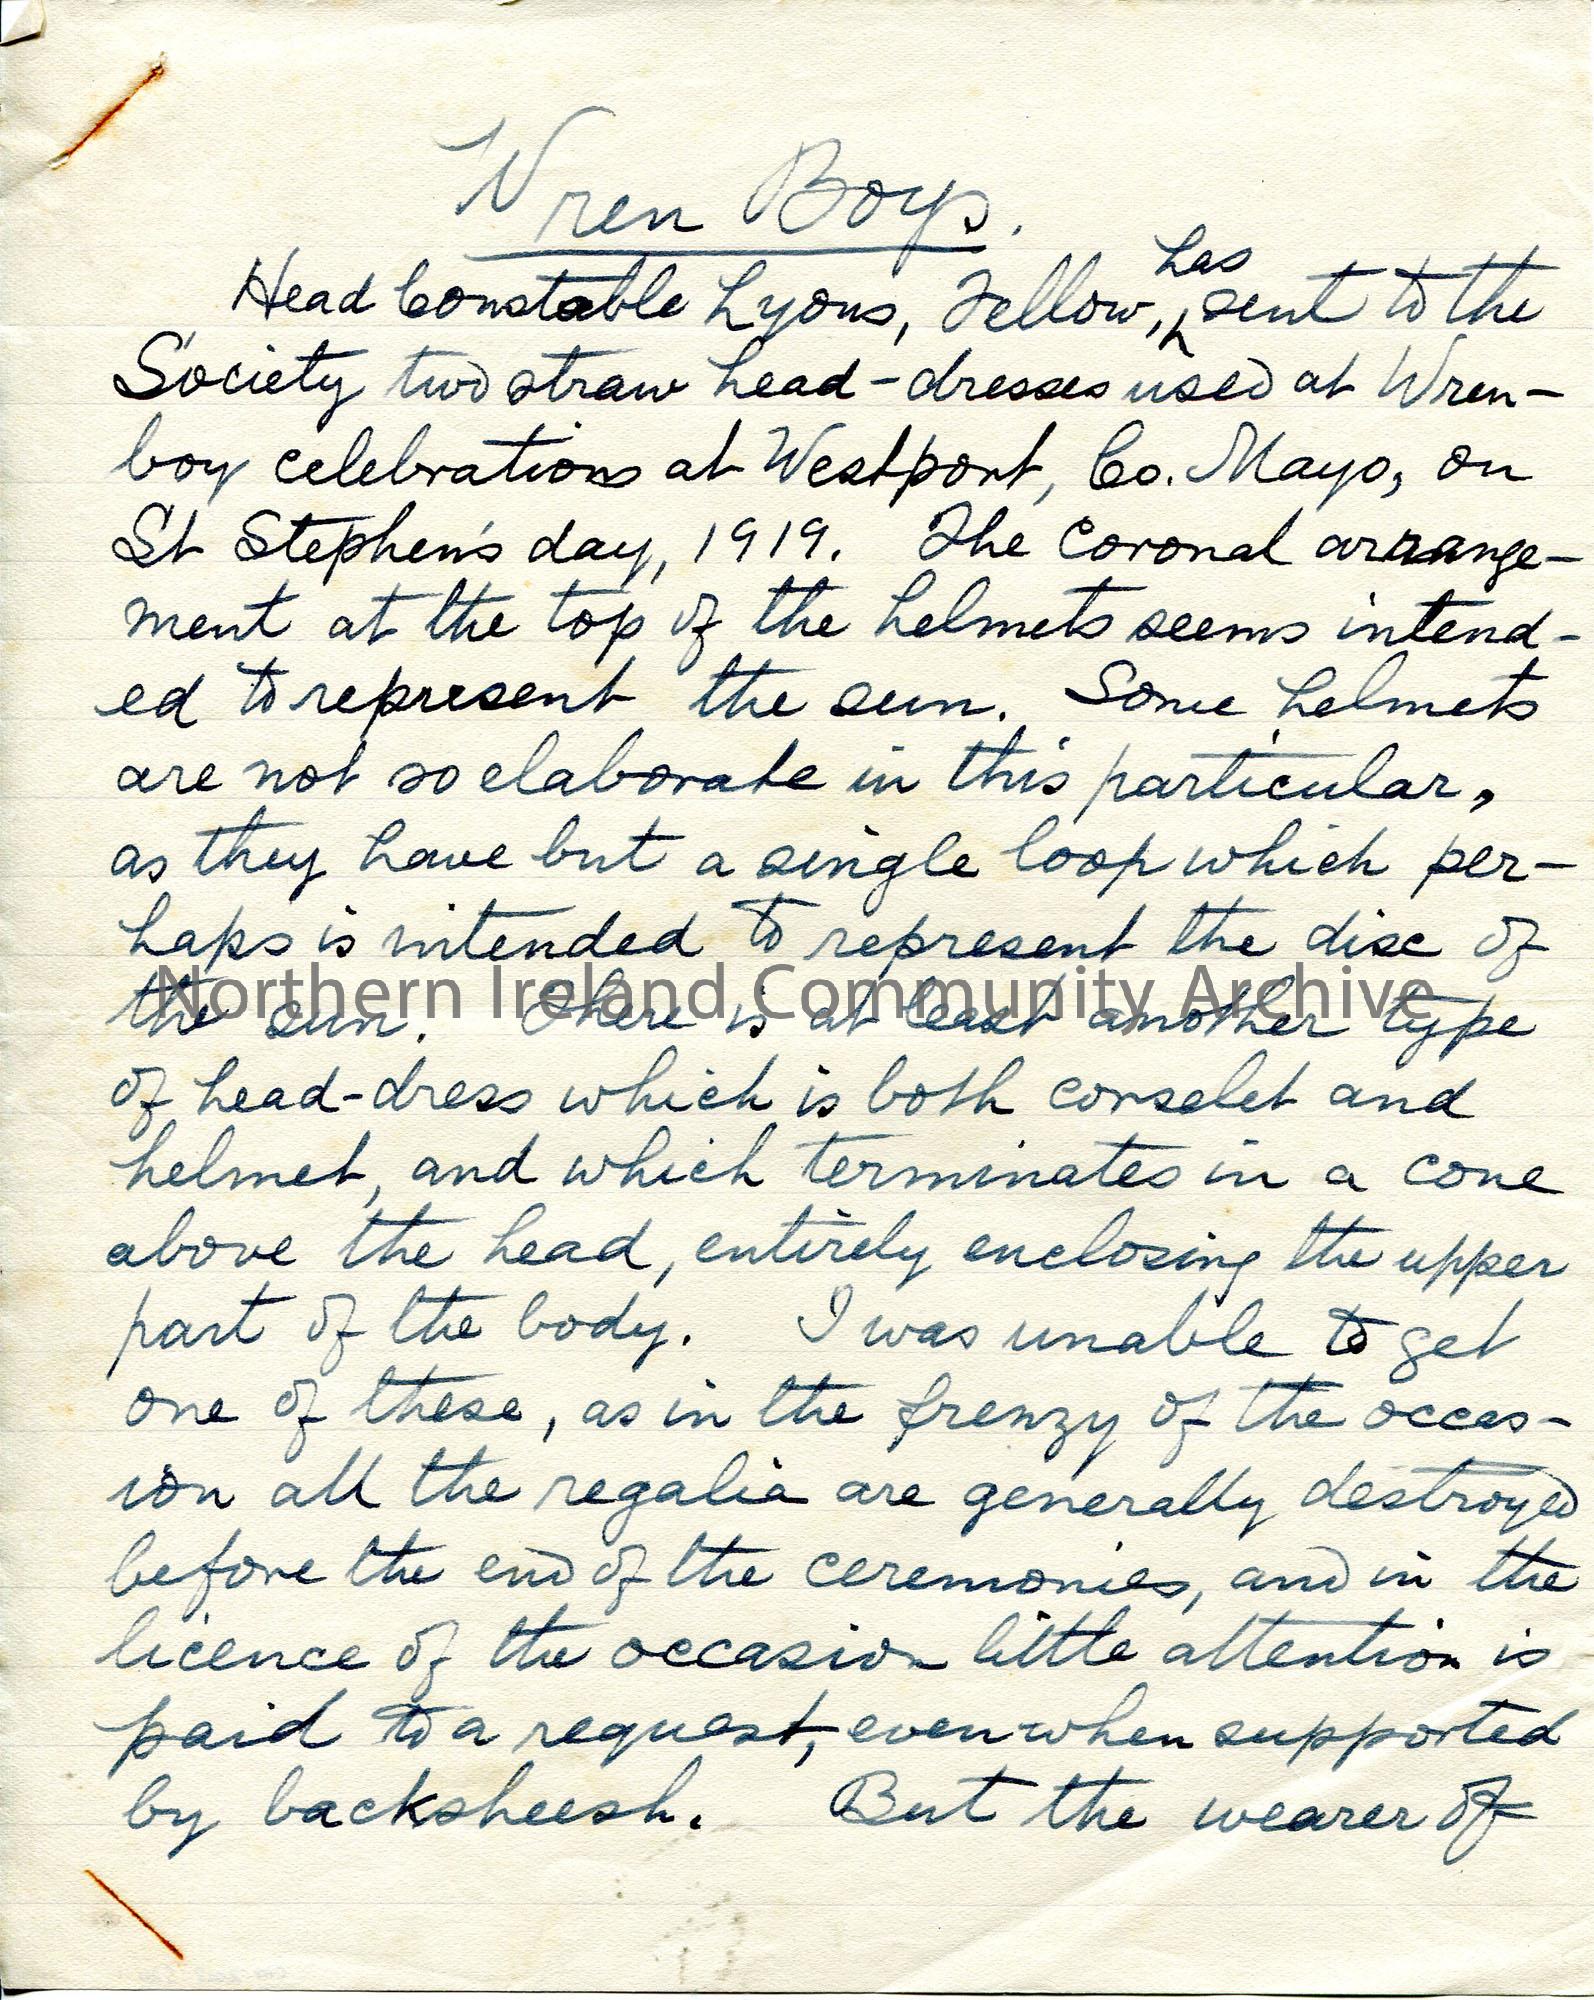 Wren Boys.
Head Constable Lyons, Fellow, has sent to the
Society two straw head-dresses used at Wren-
boy celebrations at Westport, Co. Mayo, on
St Stephen's day, 1919. The coronal arrange-
ment at the top of the helmets seems intend-
ed to represent the sun. Some helmets
are not so elaborate in this particular,
as they have but a single loop which per-
haps is intended to represent the disc of
the sun. There is at least another type
Northern Ireland Community Archive
of head-dress which is both corselet and
helmet, and which terminates in a cone
above the head, entirely enclosing the upper
part of the body. I was unable to get
one of these, as in the frenzy of the occas-
ion all the regalia are generally destroyed
before the end of the ceremonies, and in the
licence of the occasion little attention is
paid to a request, even when supported
by backsheesh. But the wearer of